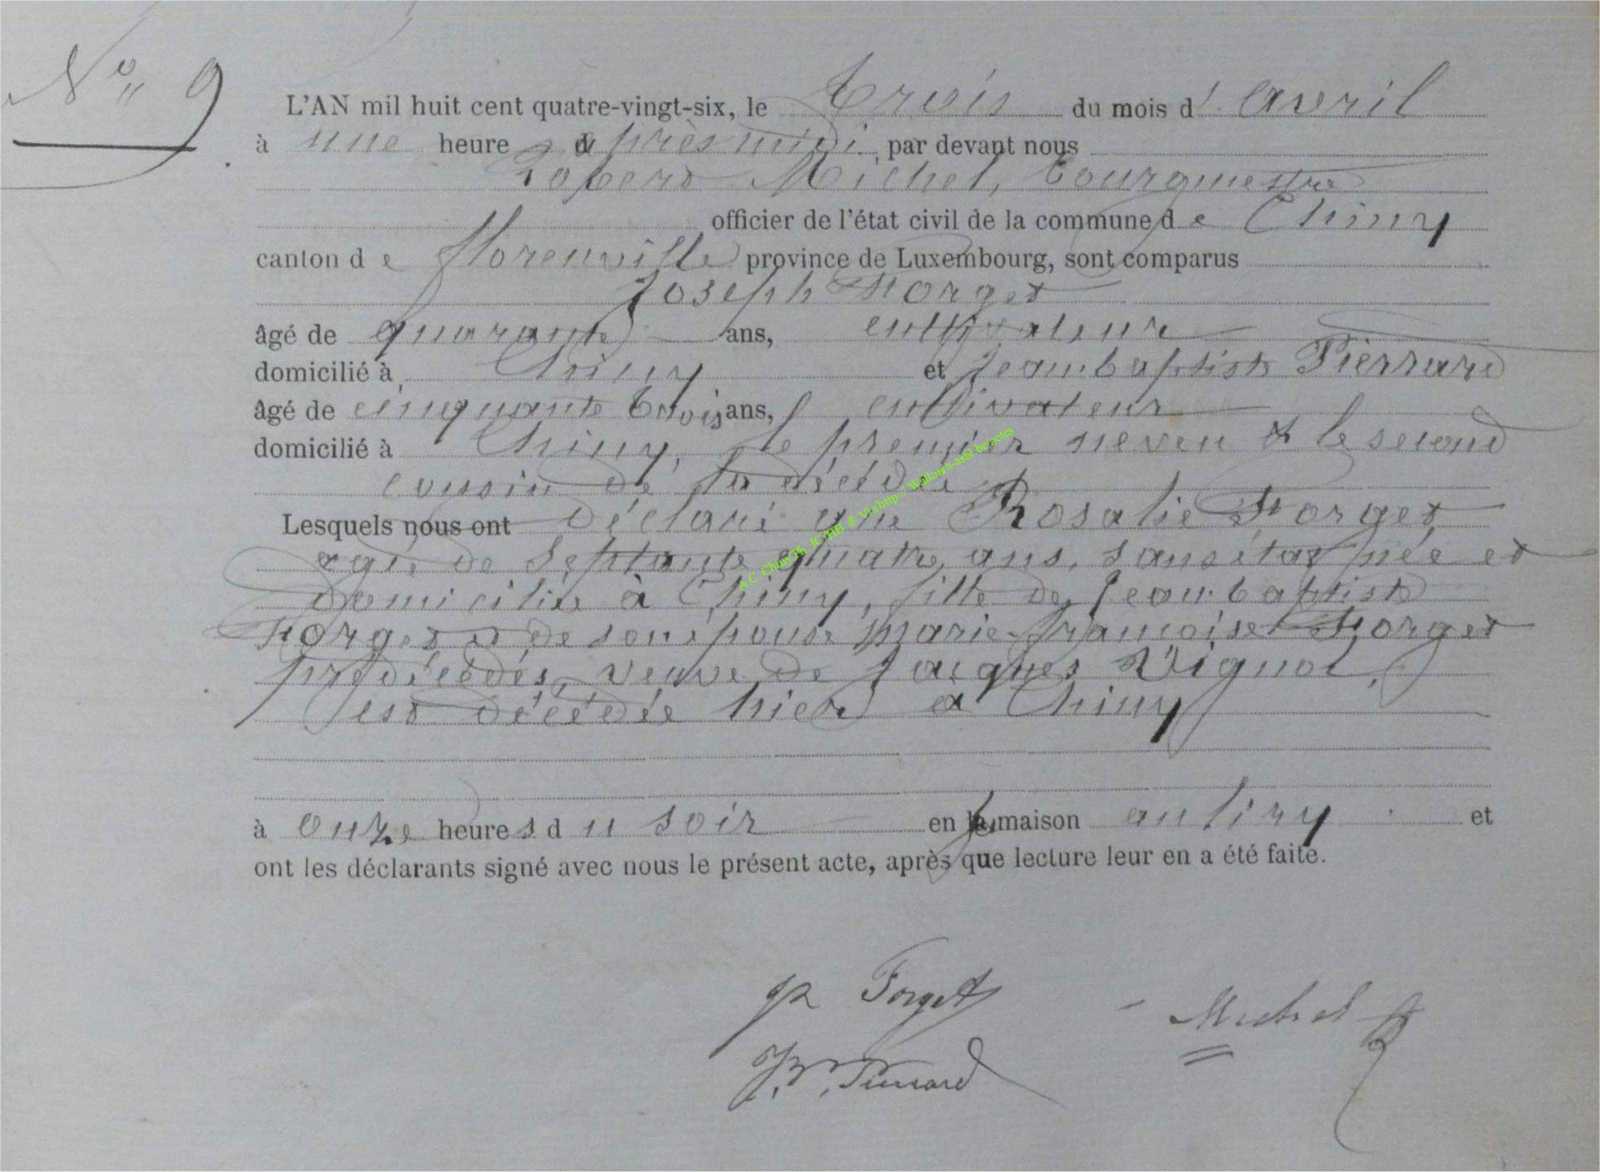 N° 9
L'AN mil huit cent quatre-vingt-six, le trois du mois d'avril
à une heure d après midi, par devant nous
Michel, bourgmestre
officier de l'état civil de la commune de Chiny
canton de florenville province de Luxembourg, sont comparus
Joseph Forget
âgé de quarante ans, cultivateur
domicilié à Chiny et Jean-baptiste Pierrard
âgé de cinquante trois ans, cultivateur
domicilié à Chiny, le premier neveu & le second
cousin de la décédée
Lesquels nous ont déclaré que Rosalie Forget
agée de septante quatre ans, sans état, née et
domiciliée à Chiny, fille de Jean-baptiste
Forget et de son épouse Marie-françoise Forget
prédécédés, veuve de Jacques Vignol,
est décédée hier à Chiny
à onze heures du soir en la maison et
ont les déclarants signé avec nous le présent acte, après que lecture leur en a été faite.
Forget
Michel
J. B. Pierrard